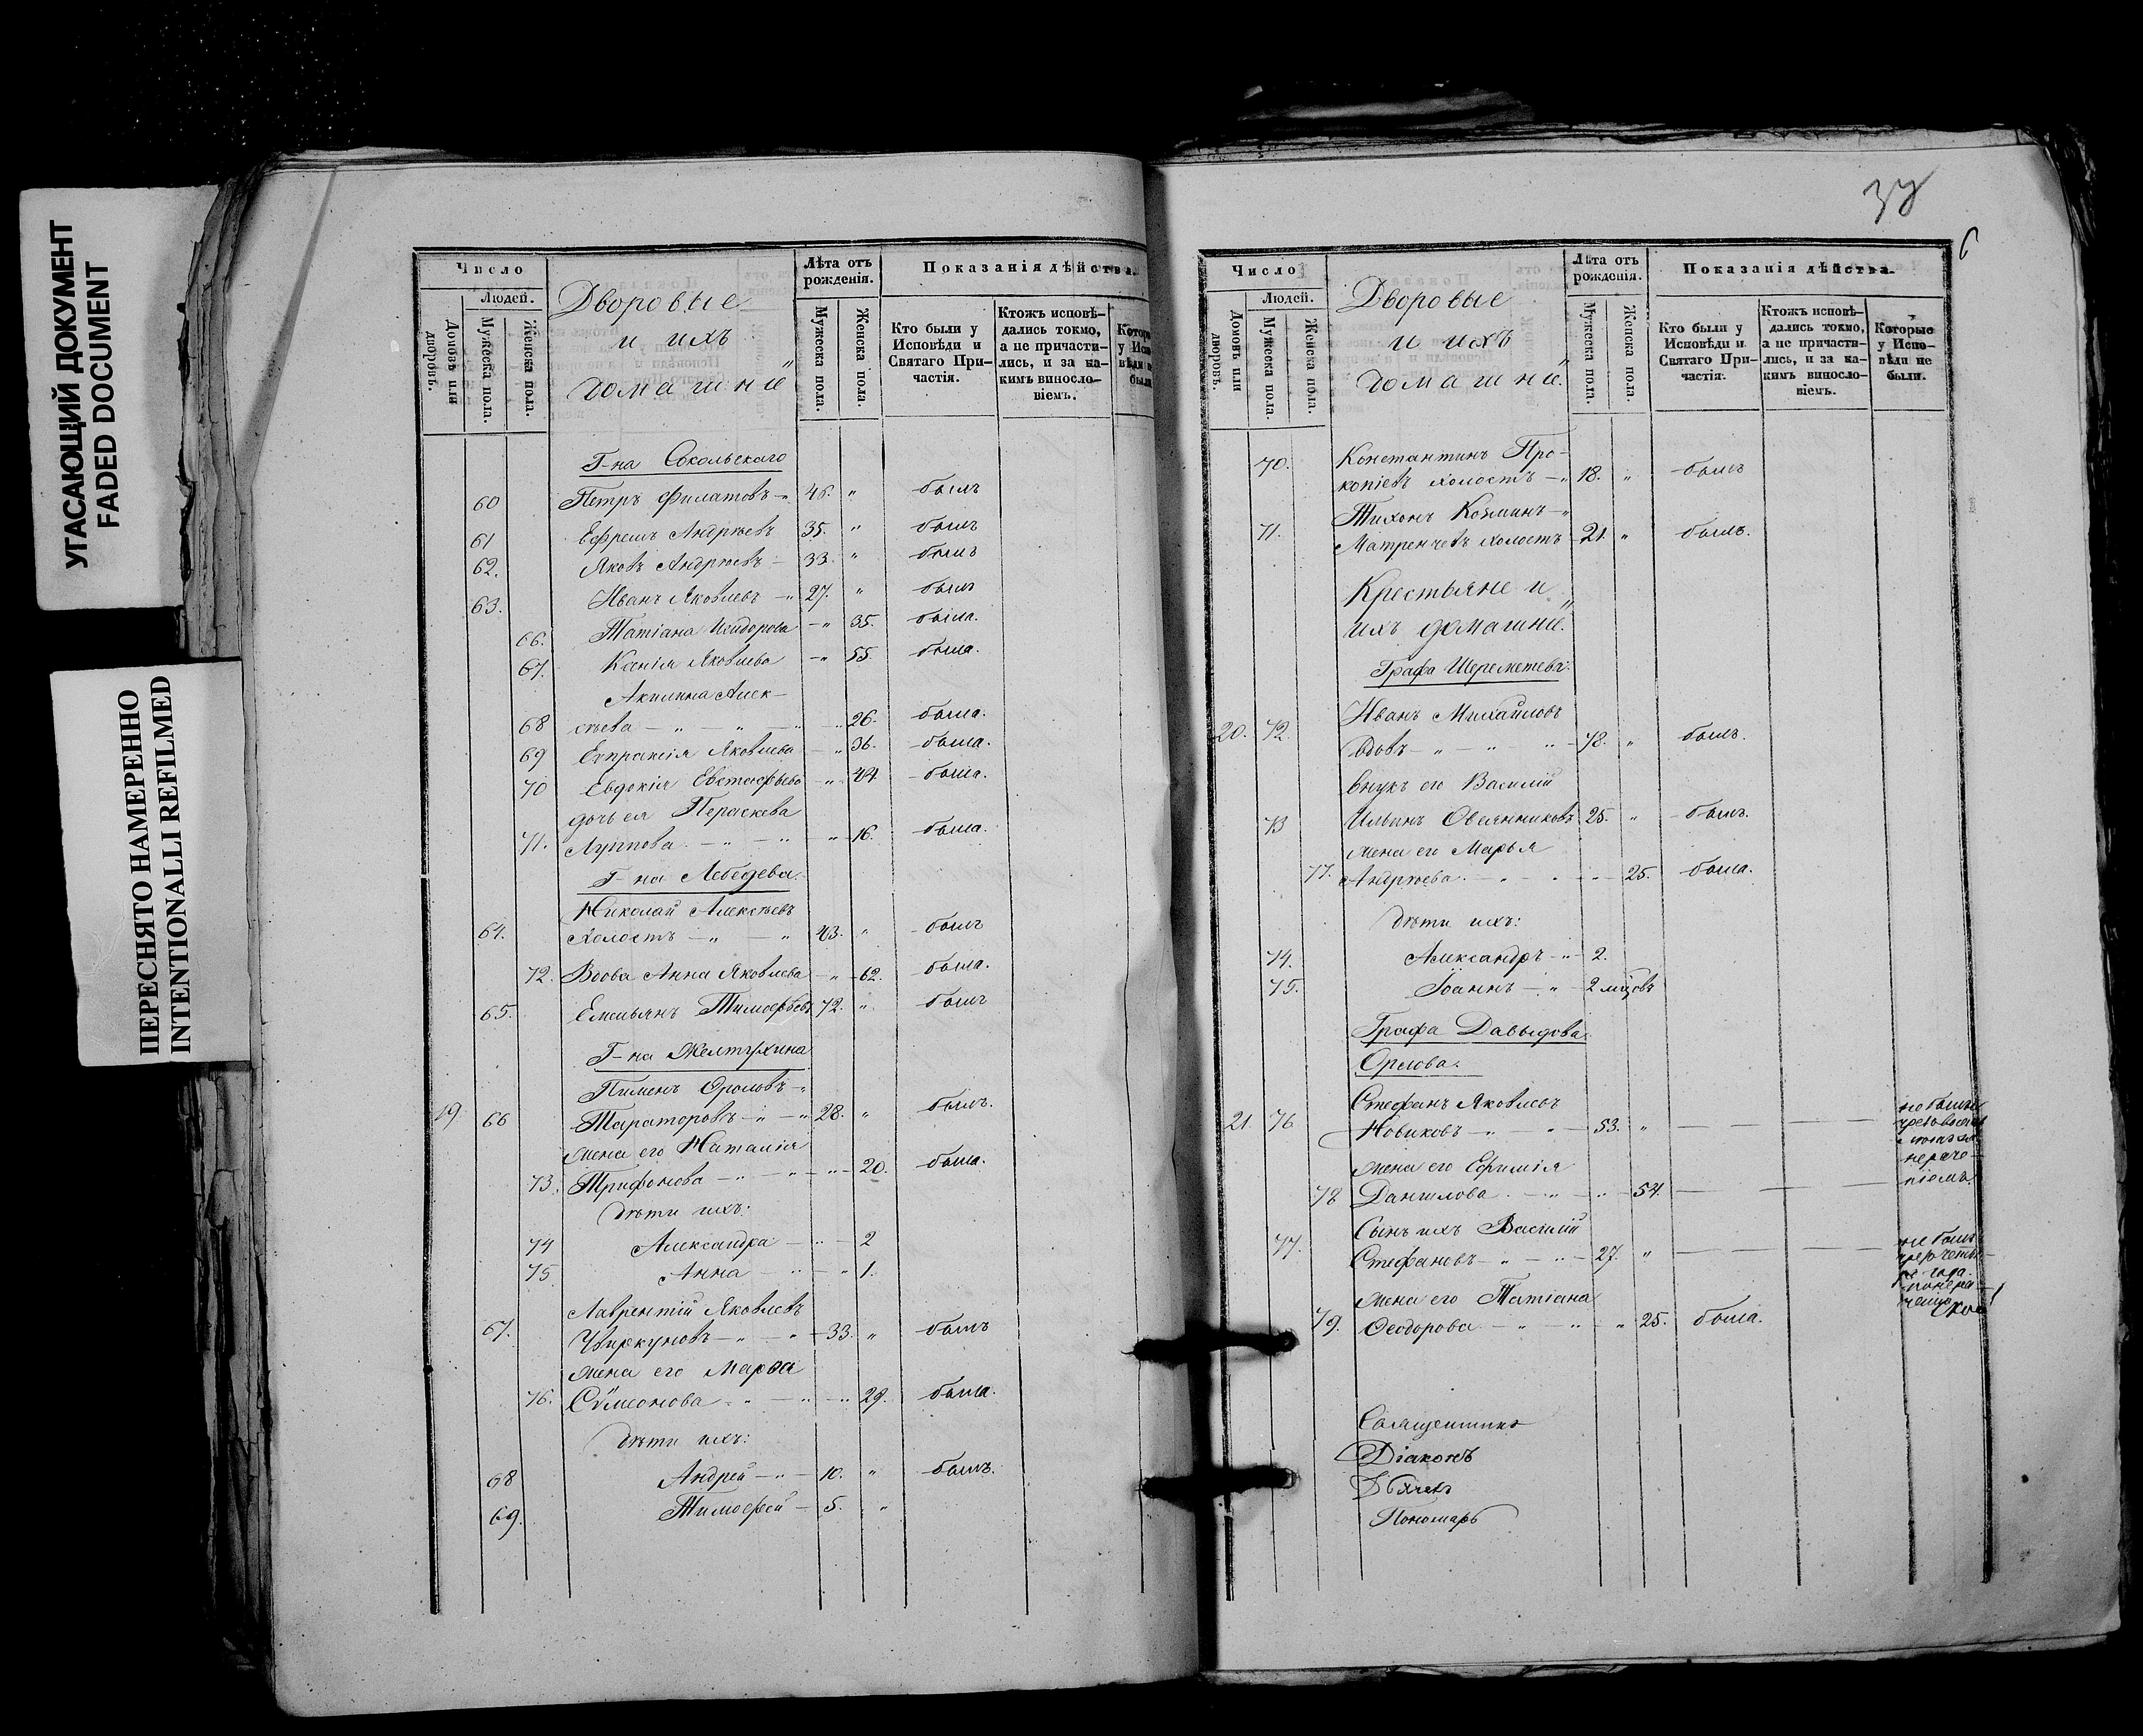 УГАСАЮЩИЙ ДОКУМЕНТ
FADED DOCUMENT
ПЕРЕСНЯТО НАМЕРЕННО
INTENTIONALLI REFILMED
Число
Людей.
Домовъ или дворовъ.
Мужеска пола.
Женска пола.
Дворовые
и ихъ
домашніе
Лѣта отъ рожденія.
Мужеска пола.
Женска пола.
Показанія дѣйства.
Кто были у Исповѣди и Святаго При-частія.
Ктожъ исповѣ-дались токмо, а не причасти-лись, и за ка-кимъ виносло-віемъ.
Г-на Сокольскаго
60 Петръ Филатовъ 46. " былъ
61 Ефремъ Андреевъ 35. " былъ
62. Яковъ Андреевъ 33. " былъ
63. Иванъ Яковлевъ 27. " былъ
66. Татіана Исидорова " 35. была.
67. Ксенія Яковлева " 55. была.
Акилина Алек-
68 сѣева " 26. была.
69 Евпраксія Яковлева " 36. была.
70 Евдокія Евстафьева " 44 была.
дочь ея Пераскева
71. Луппова " 16. была.
Г-на Лебедева.
Николай Алексѣевъ
64. холостъ 43. " былъ
72. Вдова Анна Яковлева " 62. была.
65. Емельянъ Тимофѣевъ 72. " былъ
Г-на Желтухина
Пименъ Фроловъ
19 66 Тараторовъ 28. " былъ.
жена его Наталія
73. Трифонова " 20. была.
дѣти ихъ:
74 Александра 2
75 Анна " 1.
Лаврентій Яковлевъ
67. Чвиркуновъ 33. " былъ
жена его Марѳа
76. Сѵмеонова " 29. была.
дѣти ихъ:
68 Андрей 10. " былъ.
69. Тимоѳей 5. "
6
Число
Людей.
Домовъ или дворовъ.
Мужеска пола.
Женска пола.
Дворовые
и ихъ
домашніе.
Лѣта отъ рожденія.
Мужеска пола.
Женска пола.
Показанія дѣйства.
Кто были у Исповѣди и Святаго При-частія.
Ктожъ исповѣ-дались токмо, а не причасти-лись, и за ка-кимъ виносло-віемъ.
Которые у Испо-вѣди не были.
70. Константинъ Про-
копіевъ холостъ 18. " былъ
Тихонъ Козминъ
71. Матренчевъ холостъ 21. " былъ.
Крестьяне и
ихъ домашніе.
Графа Шереметевъ.
Иванъ Михайловъ
20. 72. вдовъ 78. " былъ.
внукъ его Василій
73 Ильинъ Овсянниковъ 25. " былъ.
жена его Марья
77. Андреева 25. была.
дѣти ихъ:
74. Александръ 2.
75. Іоаннъ 2 мѣсяцовъ
Графа Давыдова
Орлова.
Стефанъ Яковлевъ
21. 76 Новиковъ 53. "
жена его Ефимія
78 Данилова 54.
Сынъ ихъ Василій
77. Стефановъ 27. "
не былъ
жена его Татіана
79. Ѳеодорова " 25. была.
Священникъ
Діаконъ
Дьячекъ
Пономарь